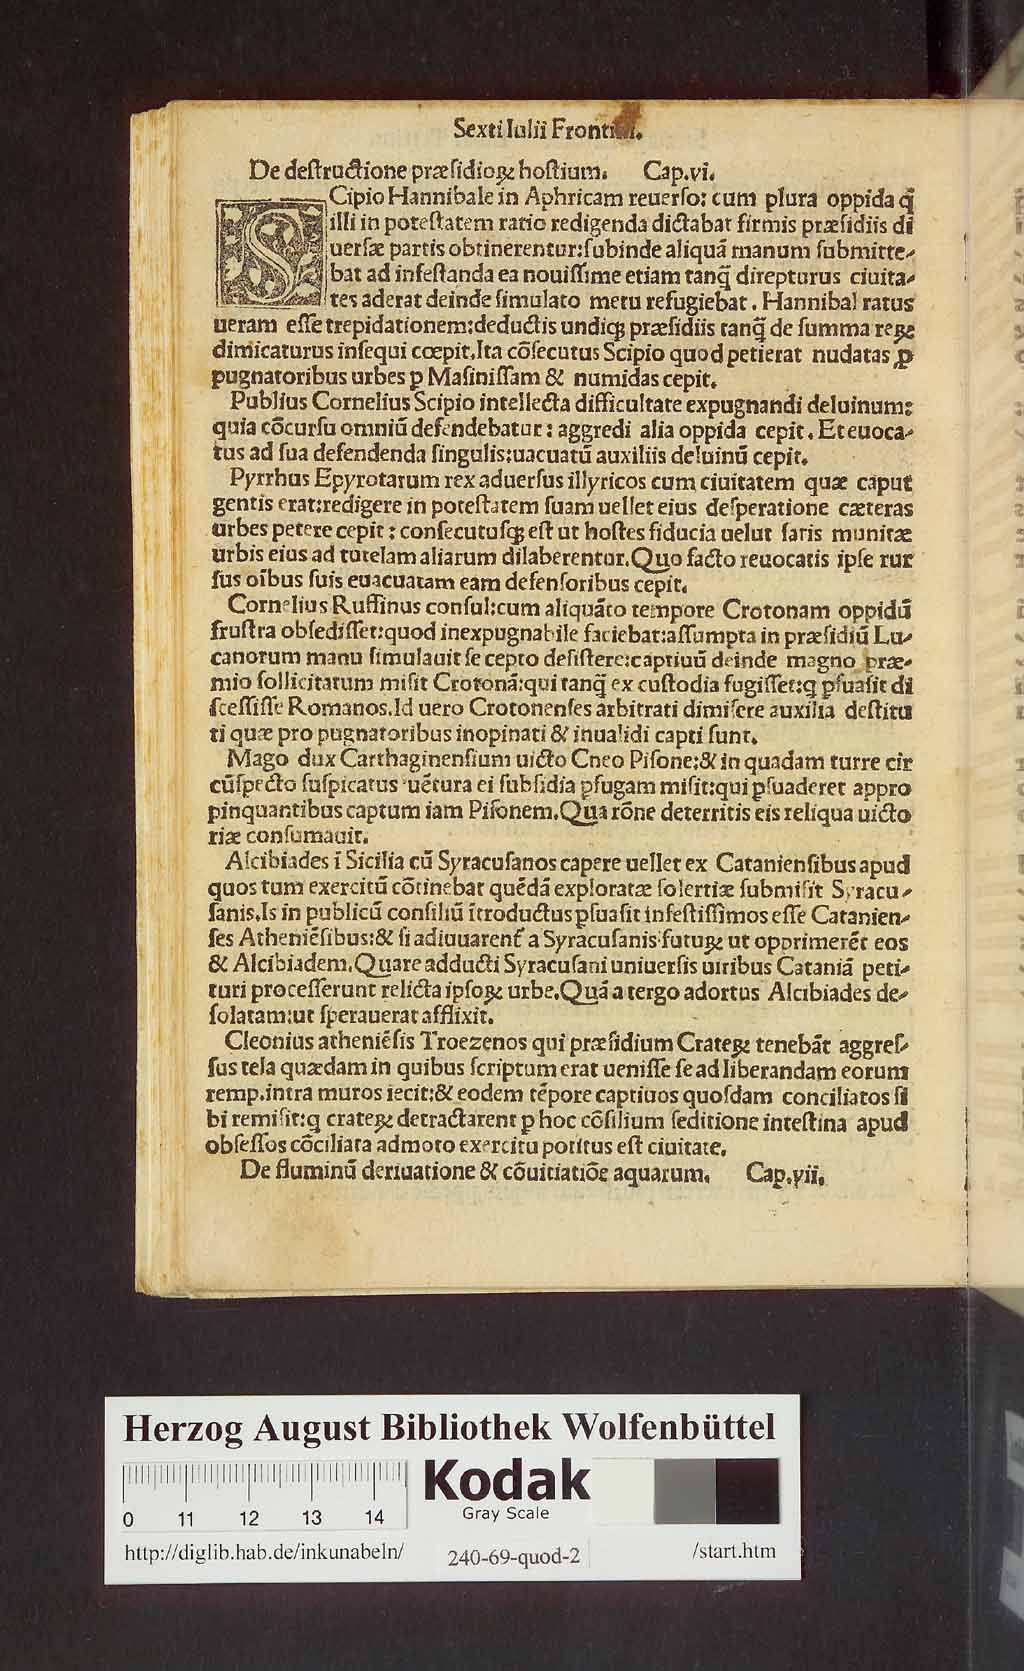 Sexti Iulii Frontini.
De destructione præsidioꝝ hostium. Cap.vi.
SCipio Hannibale in Aphricam reuerso: cum plura oppida q̃
illi in potestatem ratio redigenda dictabat firmis præsidiis di
uersæ partis obtinerentur:subinde aliquã manum submitte-
bat ad infestanda ea nouissime etiam tanq̃ direpturus ciuita-
tes aderat deinde simulato metu refugiebat. Hannibal ratus
ueram esse trepidationem:deductis undiqꝫ præsidiis tanq̃ de summa reꝝ
dimicaturus insequi cœpit.Ita cõsecutus Scipio quod petierat nudatas ꝓ
pugnatoribus urbes ꝑ Masinissam & numidas cepit.
Publius Cornelius Scipio intellecta difficultate expugnandi deluinum:
quia cõcursu omniũ defendebatur: aggredi alia oppida cepit. Et euoca-
tus ad sua defendenda singulis:uacuatũ auxiliis deluinũ cepit.
Pyrrhus Epyrotarum rex aduersus illyricos cum ciuitatem quæ caput
gentis erat:redigere in potestatem suam uellet eius desperatione cæteras
urbes petere cepit: consecutusqꝫ est ut hostes fiducia uelut satis munitæ
urbis eius ad tutelam aliarum dilaberentur.Quo facto reuocatis ipse rur
sus oĩbus suis euacuatam eam defensoribus cepit.
Cornelius Ruffinus consul:cum aliquãto tempore Crotonam oppidũ
frustra obsedisset:quod inexpugnabile faciebat:assumpta in præsidiũ Lu-
canorum manu simulauit se cepto desistere:captiuũ deinde magno præ-
mio sollicitatum misit Crotonã:qui tanq̃ ex custodia fugisset:q ꝑsuasit di
scessisse Romanos.Id uero Crotonenses arbitrati dimisere auxilia destitu
ti quæ pro pugnatoribus inopinati & inualidi capti sunt.
Mago dux Carthaginensium uicto Cneo Pisone:& in quadam turre cir
cũspecto suspicatus uẽtura ei subsidia ꝑfugam misit:qui ꝑsuaderet appro
pinquantibus captum iam Pisonem.Qua rõne deterritis eis reliqua uicto
riæ consumauit.
Alcibiades ĩ Sicilia cũ Syracusanos capere uellet ex Cataniensibus apud
quos tum exercitũ cõtinebat quẽdã exploratæ solertiæ submisit Syracu-
sanis.Is in publicũ consiliũ ĩtroductus ꝑsuasit infestissimos esse Catanien-
ses Atheniẽsibus:& si adiuuarent᷑ a Syracusanis futuꝝ ut opprimerẽt eos
& Alcibiadem.Quare adducti Syracusani uniuersis uiribus Cataniã peti-
turi processerunt relicta ipsoꝝ urbe.Quã a tergo adortus Alcibiades de-
solatam:ut sperauerat afflixit.
Cleonius atheniẽsis Troezenos qui præsidium Crateꝝ tenebãt aggres-
sus tela quædam in quibus scriptum erat uenisse se ad liberandam eorum
remp.intra muros iecit:& eodem tẽpore captiuos quosdam conciliatos si
bi remisit:q crateꝝ detractarent ꝑ hoc cõsilium seditione intestina apud
obsessos cõciliata admoto exercitu potitus est ciuitate.
De fluminũ deriuatione & cõuitiatiõe aquarum. Cap.vii.
Herzog August Bibliothek Wolfenbüttel
Kodak
Gray Scale
0 11 12 13 14
http://diglib.hab.de/inkunabeln/ 240-69-quod-2 /start.htm